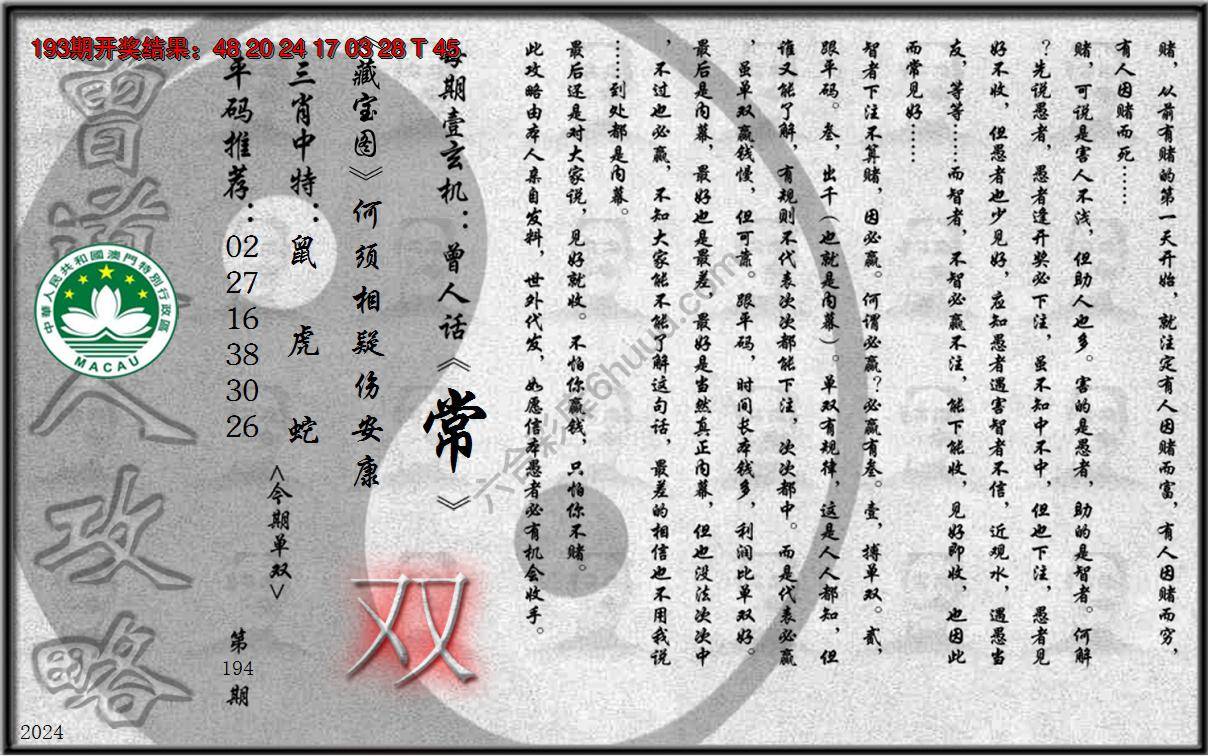 193期开奖结果：48 20 24 17 03 28 T 45
赌，从前有赌的第一天开始，就注定有人因赌而富，有人因赌而穷，
有人因赌而死……
赌，可说是害人不浅，但助人也多。害的是愚者，助的是智者。何解
？先说愚者，愚者逢开奖必下注，虽不知中不中，但也下注，愚者见
好不收，但愚者也少见好，应知愚者遇害智者不信，近观水，遇愚当
友，等等……而智者，不智必赢不注，能下能收，见好即收，也因此
而常见好……
智者下注不算赌，因必赢。何谓必赢？必赢有叁。壹，搏单双。贰，
跟平码。叁，出千（也就是内幕）。单双有规律，这是人人都知，但
谁又能了解，有规则不代表次次都能下注，次次都中。而是代表必赢
，虽单双赢钱慢，但可靠。跟平码，时间长本钱多，利润比单双好。
最后是内幕，最好也是最差，最好是当然真正内幕，但也没法次次中
，不过也必赢，不知大家能不能了解这句话，最差的相信也不用我说
……到处都是内幕。
最后还是对大家说，见好就收。不怕你赢钱，只怕你不赌。
此攻略由本人亲自发料，世外代发，如愿信本愚者必有机会收手。
每期壹玄机：曾人话《常》
《藏宝图》何须相疑伤安康
双
三肖中特：鼠 虎 蛇
<今期单双>
平码推荐：02 27 16 38 30 26
第194期
曾道人攻略
中華人民共和國澳門特別行政區
MACAU
2024